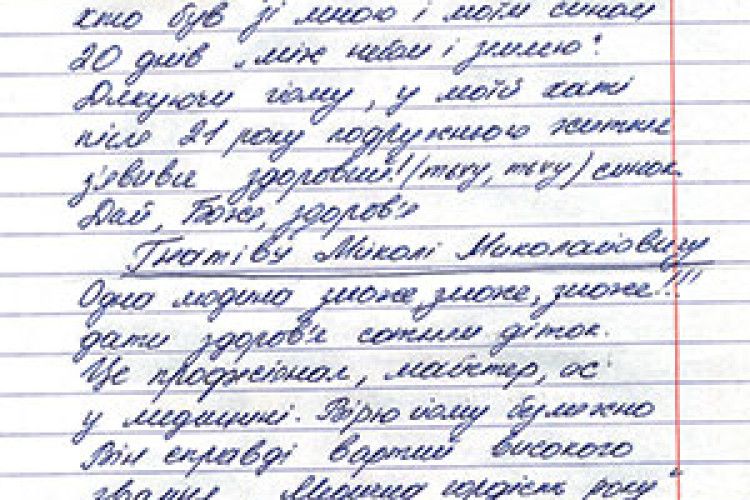 хто був зі мною і моїм сином
20 днів „між небом і землею".
Дякуючи йому, у моїй хаті
після 21 року подружнього життя
з'явився здоровий! (тьху, тьху) синок.
Дай, Боже, здоров'я
Гнатіву Миколі Миколайовичу
Одна людина зможе, зможе, зможе!!!
дати здоров'я сотням діток.
Це професіонал, майстер, ас
у медицині. Вірю йому
Він справді вартий високого
звання „Людина року"